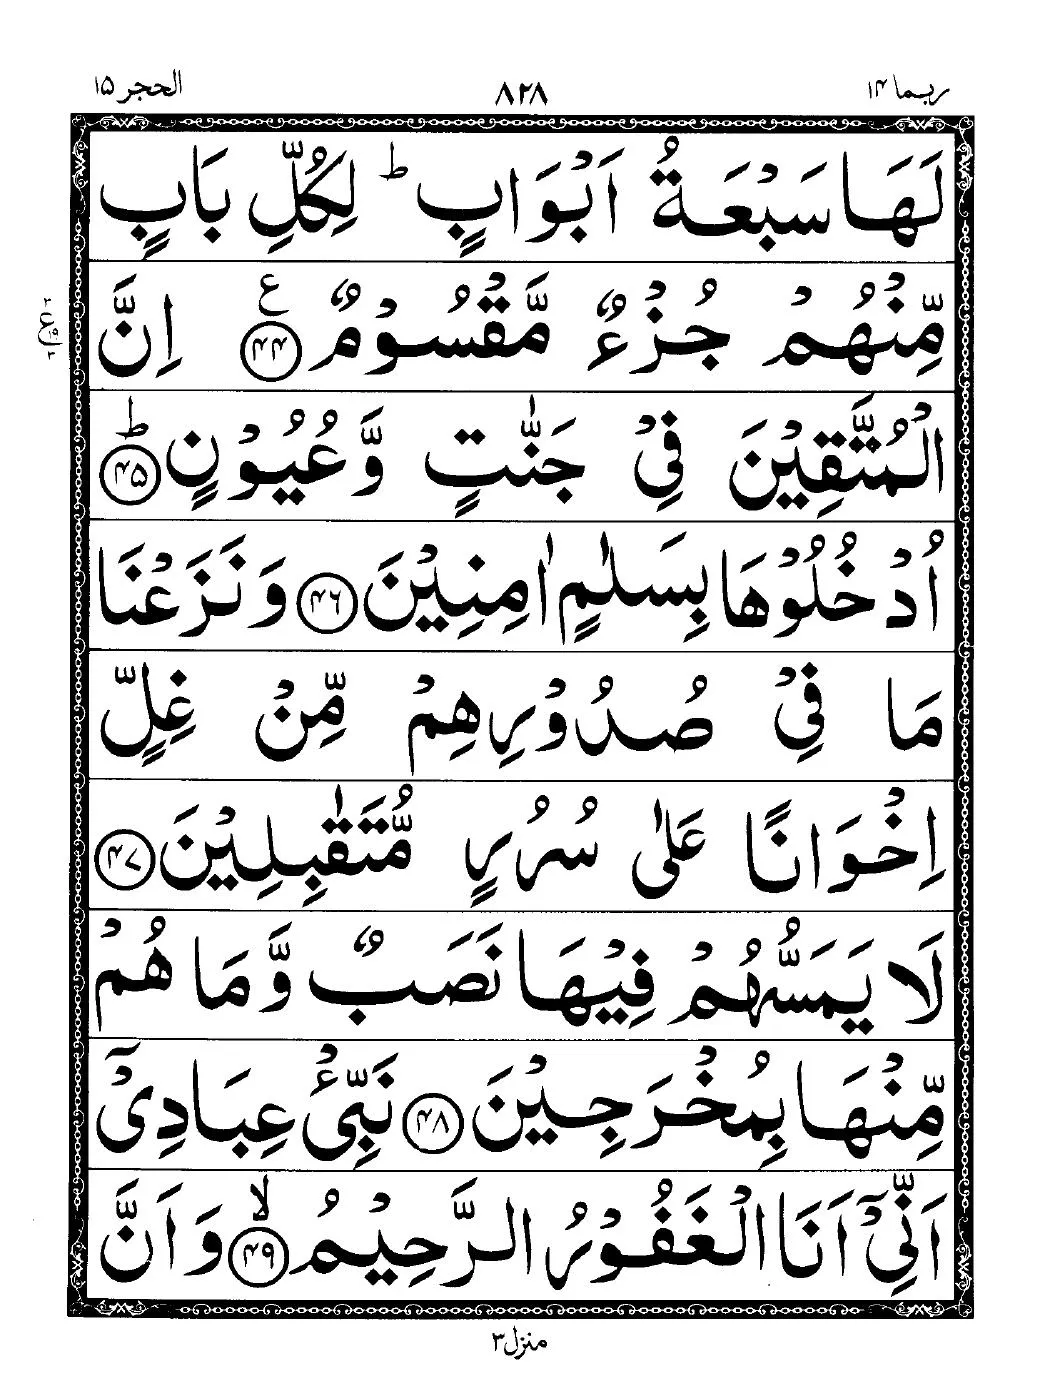 ربما ١٤
٨٢٨
الحجر ١٥
لَهَا سَبْعَةُ اَبْوَابٍ ؕ لِكُلِّ بَابٍ
مِّنْهُمْ جُزْءٌ مَّقْسُوْمٌ ﴿۴۴﴾ ع اِنَّ
الْمُتَّقِيْنَ فِيْ جَنّٰتٍ وَّعُيُوْنٍ ﴿۴۵﴾ ؕ
اُدْخُلُوْهَا بِسَلٰمٍ اٰمِنِيْنَ ﴿۴۶﴾ وَنَزَعْنَا
مَا فِيْ صُدُوْرِهِمْ مِّنْ غِلٍّ
اِخْوَانًا عَلٰى سُرُرٍ مُّتَقٰبِلِيْنَ ﴿۴۷﴾
لَا يَمَسُّهُمْ فِيْهَا نَصَبٌ وَّمَا هُمْ
مِّنْهَا بِمُخْرَجِيْنَ ﴿۴۸﴾ نَبِّئْ عِبَادِيْۤ
اَنِّيْۤ اَنَا الْغَفُوْرُ الرَّحِيْمُ ﴿۴۹﴾ ۙ وَاَنَّ
منزل ٣